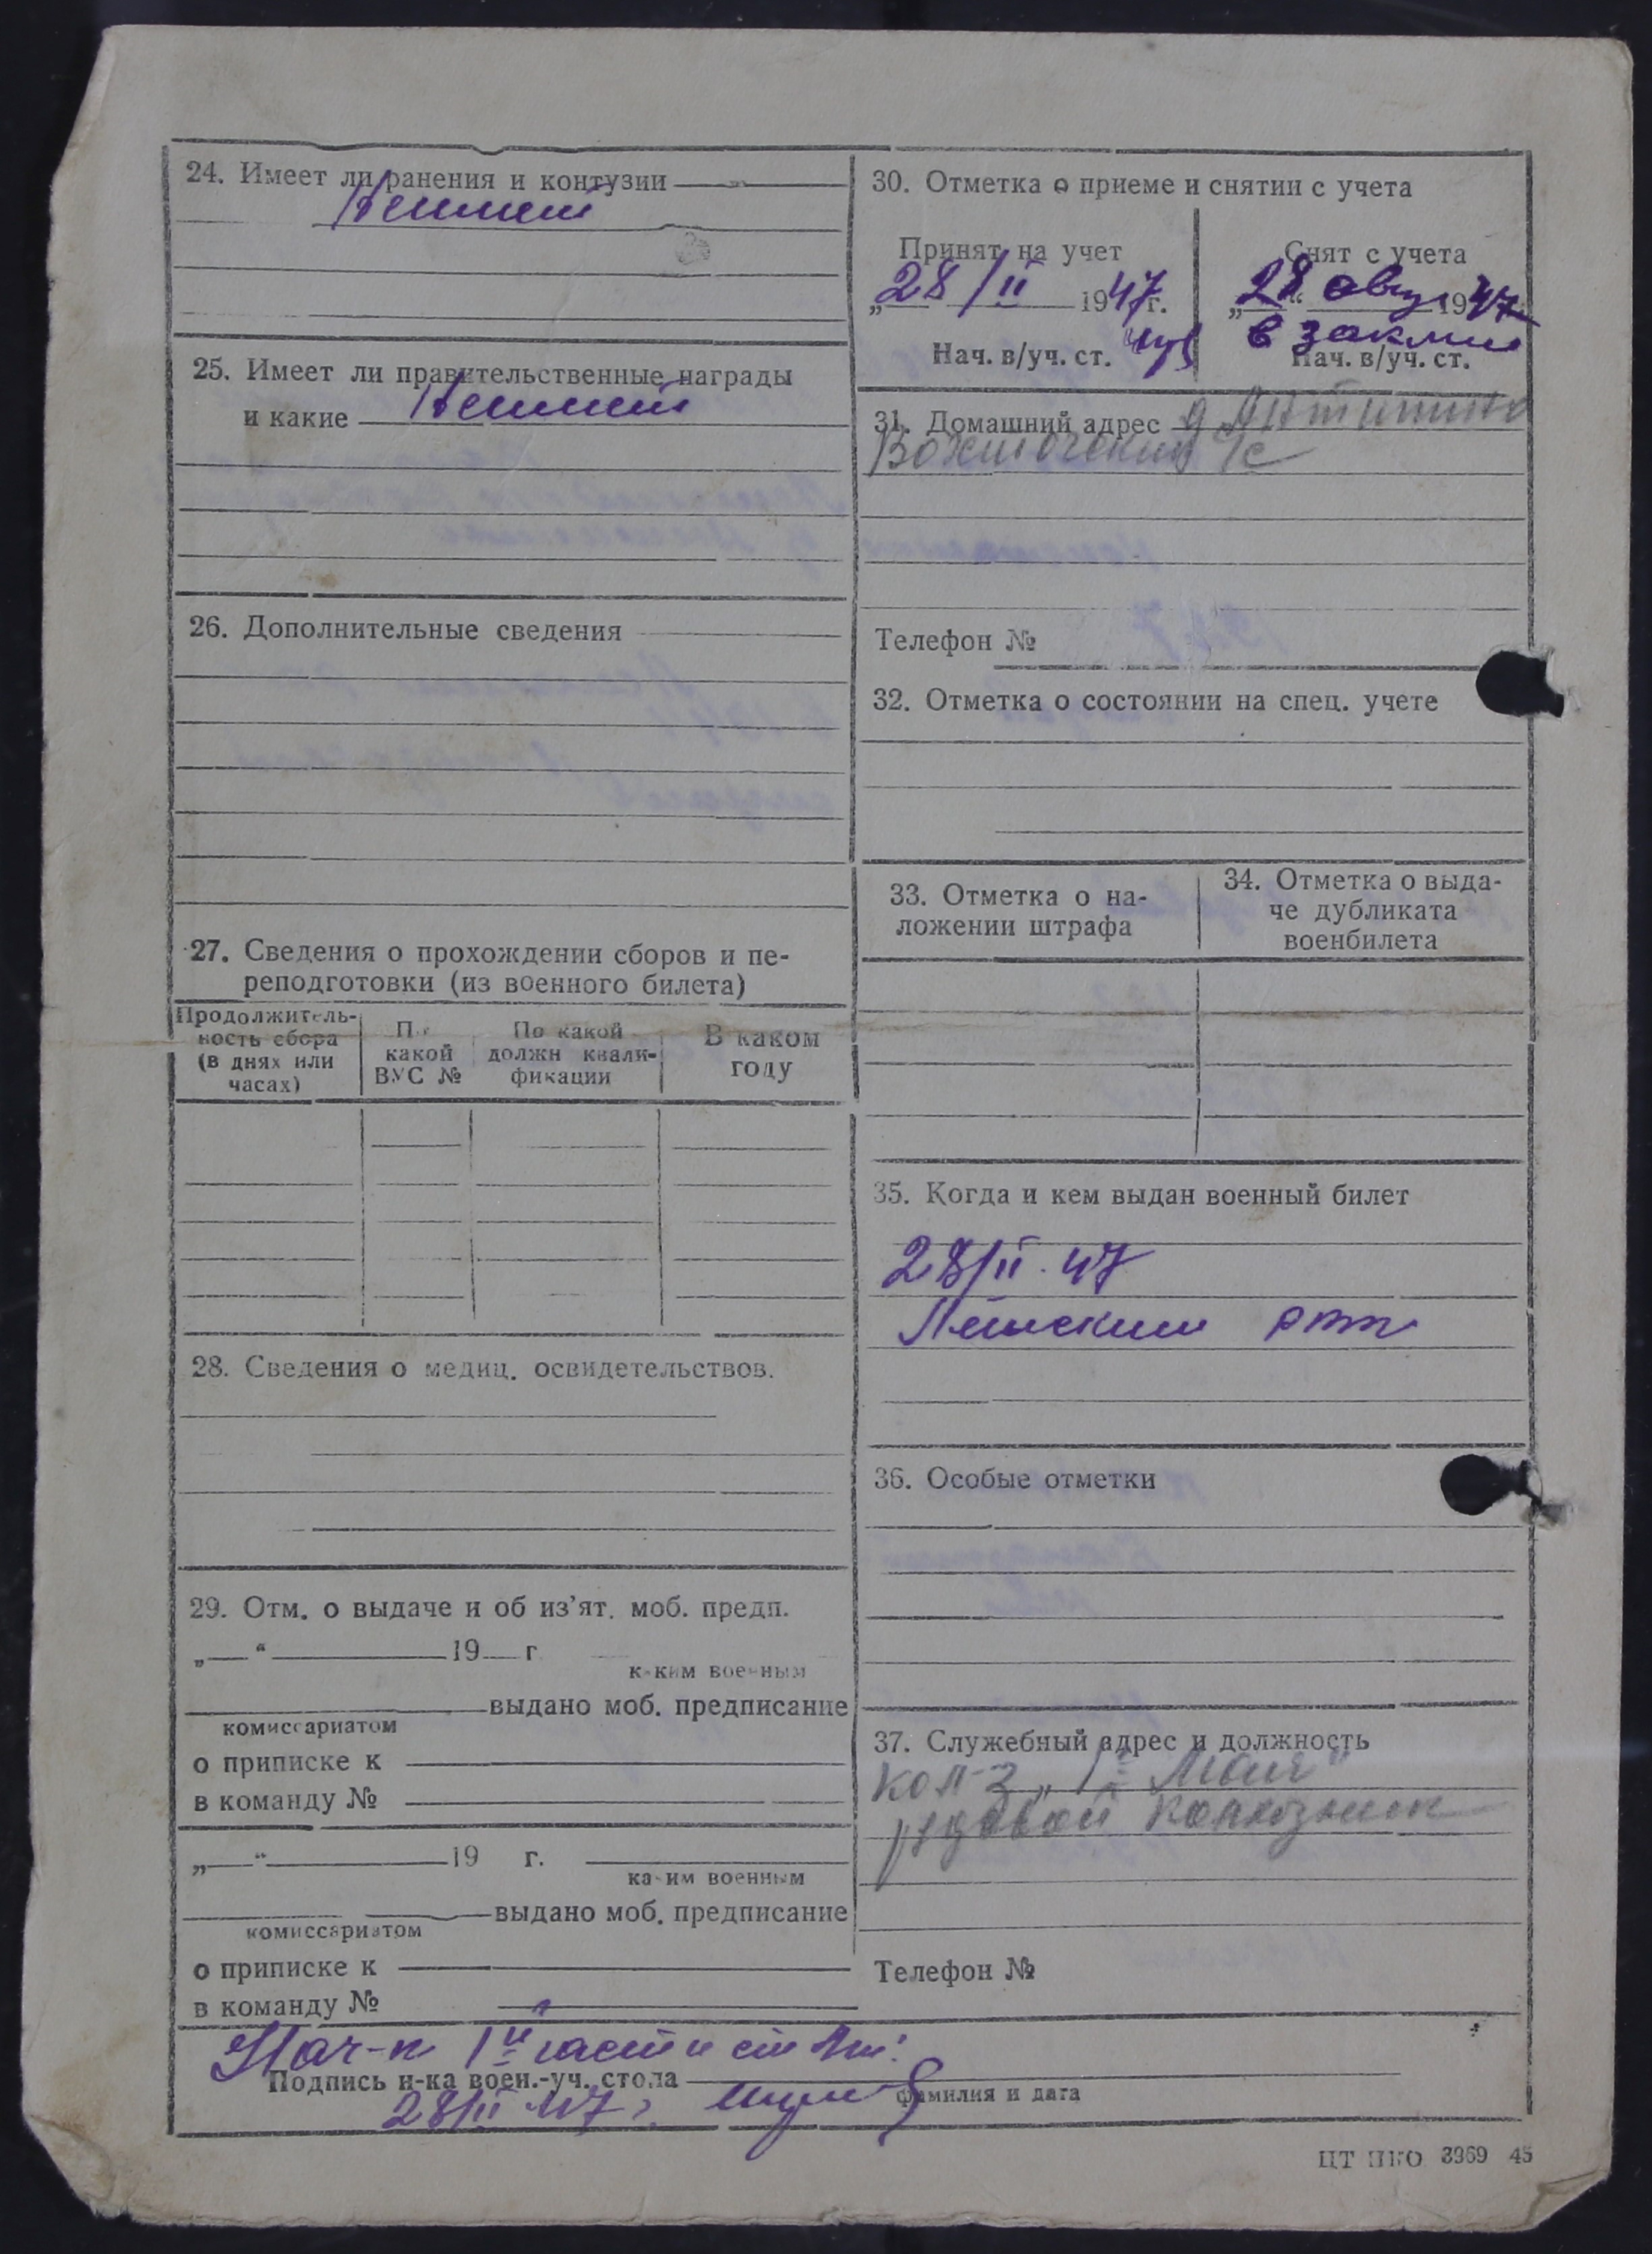 24. Имеет ли ранения и контузии
Не имеет
25. Имеет ли правительственные награды
и какие Не имеет
26. Дополнительные сведения
27. Сведения о прохождении сборов и пе-
реподготовки (из военного билета)
Продолжитель-
ность сбора
(в днях или
часах)
По
какой
ВУС №
По какой
должн квали-
фикации
В каком
году
28. Сведения о медиц. освидетельствов.
29. Отм. о выдаче и об из'ят. моб. предп.
„ “ 19 г
каким военным
выдано моб. предписание
комиссариатом
о приписке к
в команду №
„ “ 19 г.
каким военным
выдано моб. предписание
комиссариатом
о приписке к
в команду №
30. Отметка о приеме и снятии с учета
Принят на учет
„28/II 1947 г.
Нач. в/уч. ст.
Снят с учета
„28“ авгу 1947
в
Нач. в/уч. ст.
31. Домашний адрес д
с/с
Телефон №
32. Отметка о состоянии на спец. учете
33. Отметка о на-
ложении штрафа
34. Отметка о выда-
че дубликата
военбилета
35. Когда и кем выдан военный билет
28/II. 47
36. Особые отметки
37. Служебный адрес и должность
кол-з „1е Мая“
рядовой колхозник
Телефон №
Нач-к 1й части
Подпись н-ка воен.-уч. стола
28/II 47
фамилия и дата
ЦТ НКО 3969 45